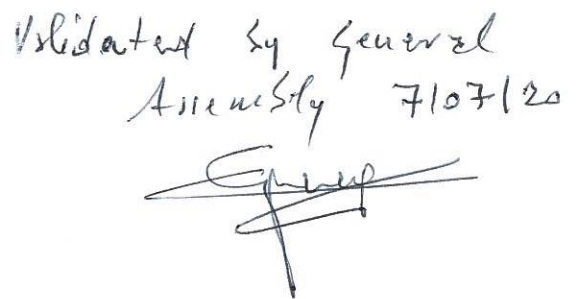 Validated by General
Assembly 7/07/20